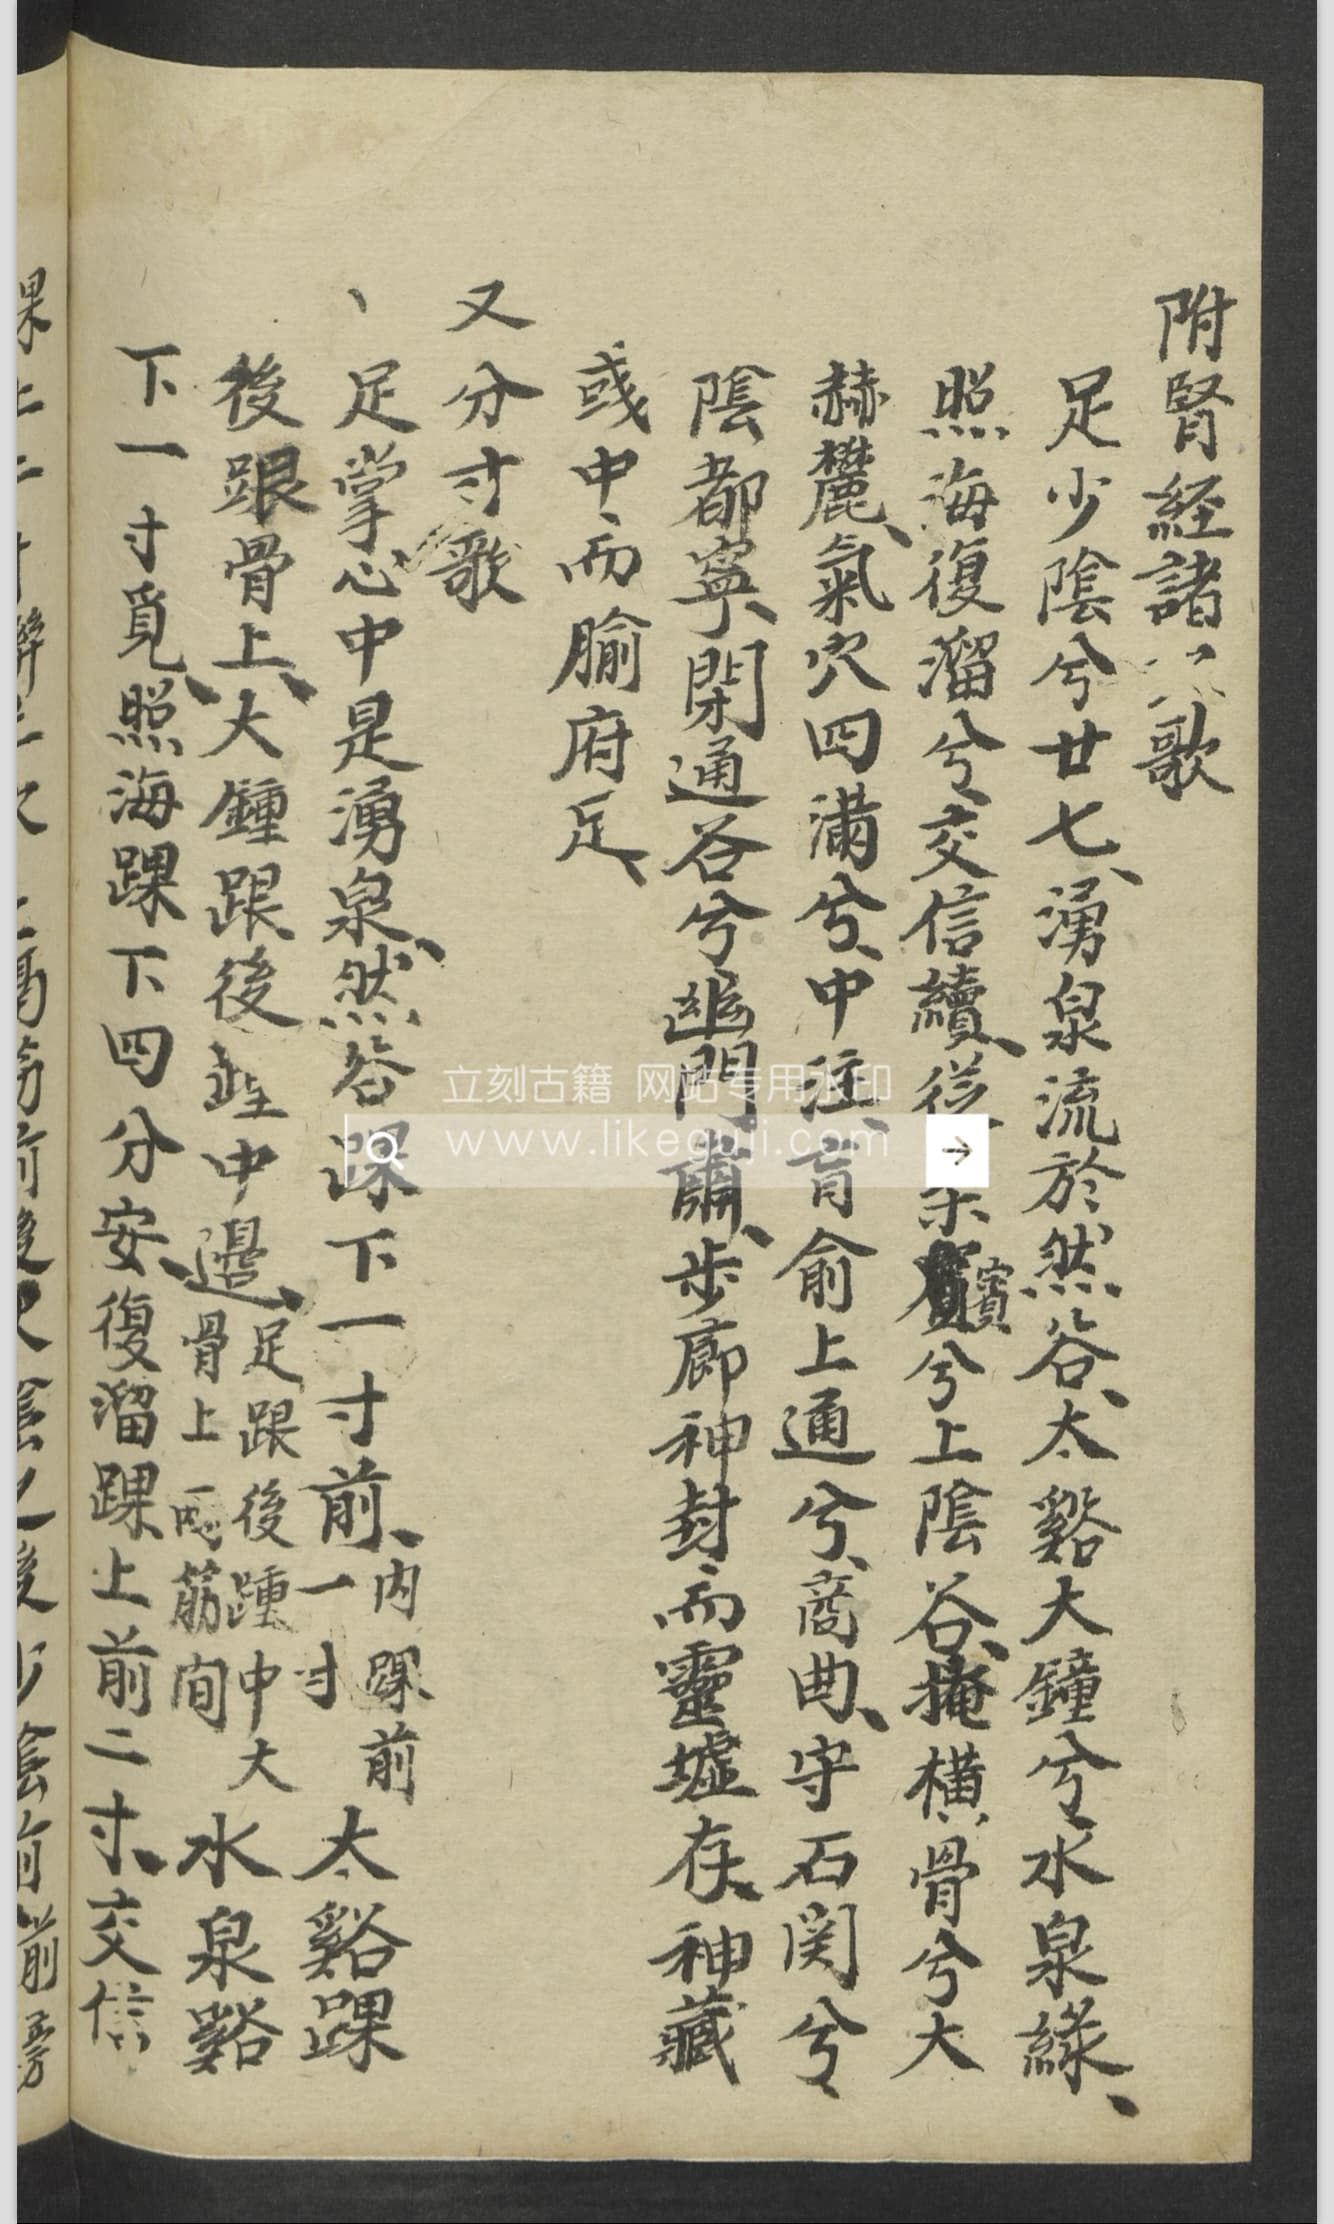 附腎経諸穴歌
足少陰兮廿七、湧泉流於然谷、太谿大鐘兮水泉緣、
照海復溜兮、交信續、從築賓兮上陰谷、掩橫骨兮大
赫麓、氣穴四滿兮、中注、肓俞上通兮、商曲、守石関兮
陰都寧、閉通谷兮幽門肅、步廊神封而靈墟存、神藏
彧中而腧府足、
又分寸歌
、足掌心中是湧泉、然谷踝下一寸前、內踝前一寸太谿踝
後跟骨上、大鍾跟後踵中邊、足跟後踵中大骨上兩筋間水泉谿
下一寸覓、照海踝下四分安、復溜踝上前二寸、交信
立刻古籍 网站专用水印
www.likeguji.com